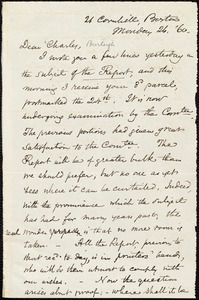 21 Cornhill, Boston
Monday 26, '60.
Dear Charles, Burleigh
I wrote you a few lines yesterday on
the subject of the Report, and this
morning I receive your P. parcel,
postmarked the 24th. It is now
undergoing examination by the Comtee.
The previous portions had given great
satisfaction to the Comtee. The
Report will be of greater bulk than
we should prefer, but no one as yet
sees where it can be curtailed. Indeed
with the prominence which the subject
has had for many years past, the
wonder is that no more room is
taken. All the Report, prior to
that rec'd to-day, is in printers' hands,
who will do their utmost to comply with
our wishes. Now the question
arises about proof; where shall it be